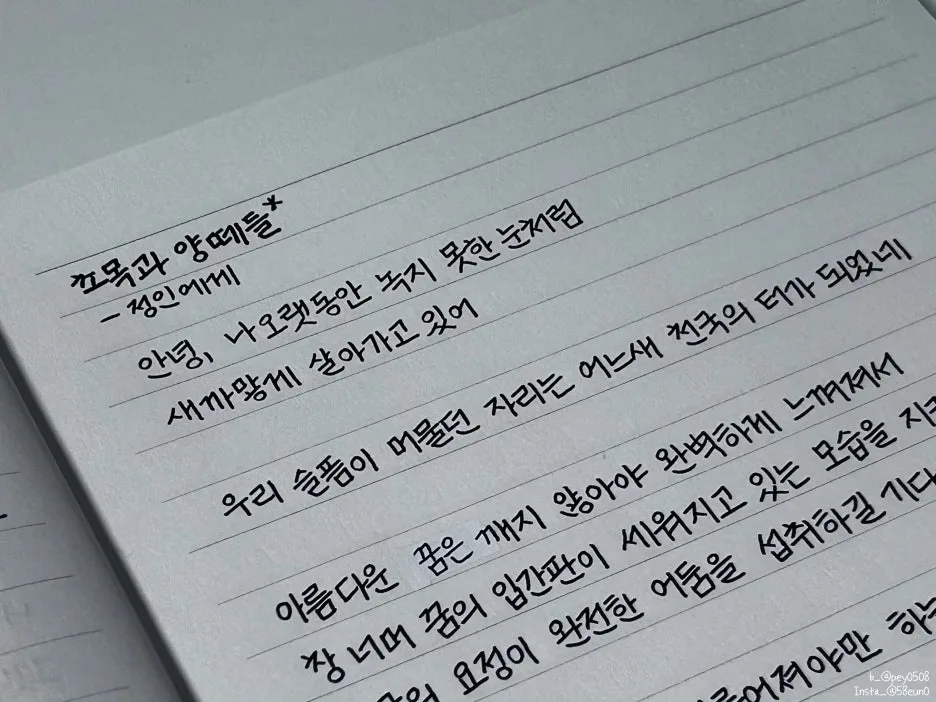 꼬목과 양떼들*
- 정인에게
안녕, 나 오랫동안 녹지 못한 눈처럼
새까맣게 살아가고 있어
우리 슬픔이 머물던 자리는 어느새 천국의 터가 되었네
아름다운 꿈은 깨지 않아야 완벽하게 느껴져서
창 너머 꿈의 입간판이 세워지고 있는 모습을
요정이 완전한 어둠을 섭취하길
b_@pey0508
Insta_@58eun0